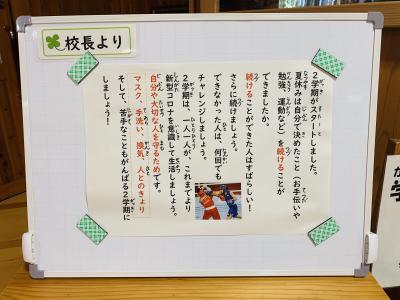 校長より
2学期がスタートしました。
夏休みは自分で決めたこと（お手伝いや
勉強、運動など）を続けることが
できましたか。
続けることができた人はすばらしい！
さらに続けましょう。
できなかった人は、何回でも
チャレンジしましょう。
2学期は、一人一人が、これまでより
新型コロナを意識して生活しましょう。
自分や大切な人を守るためです。
マスク、手洗い、換気、人とのきょり
そして、苦手なこともがんばる2学期に
しましょう！